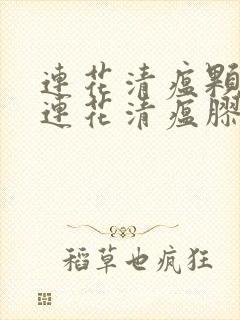 連花清瘟顆
連花清瘟膠
稻草也疯狂